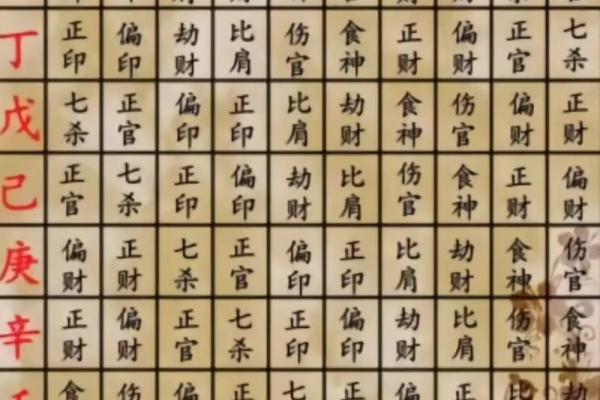 丁 正印 偏印 劫财 比肩 伤官 食神 正财 偏财 正官 七杀
戊 七杀 正官 偏印 正印 比肩 劫财 食神 伤官 偏财 正财
己 正官 七杀 正印 偏印 劫财 比肩 伤官 食神 正财 偏财
庚 偏财 正财 七杀 正官 偏印 正印 比肩 劫财 食神 伤官
辛 正财 偏财 正官 七杀 正印 偏印 劫财 比肩 伤官 食神
食 伤 偏 正 七 正 偏 正 比 劫